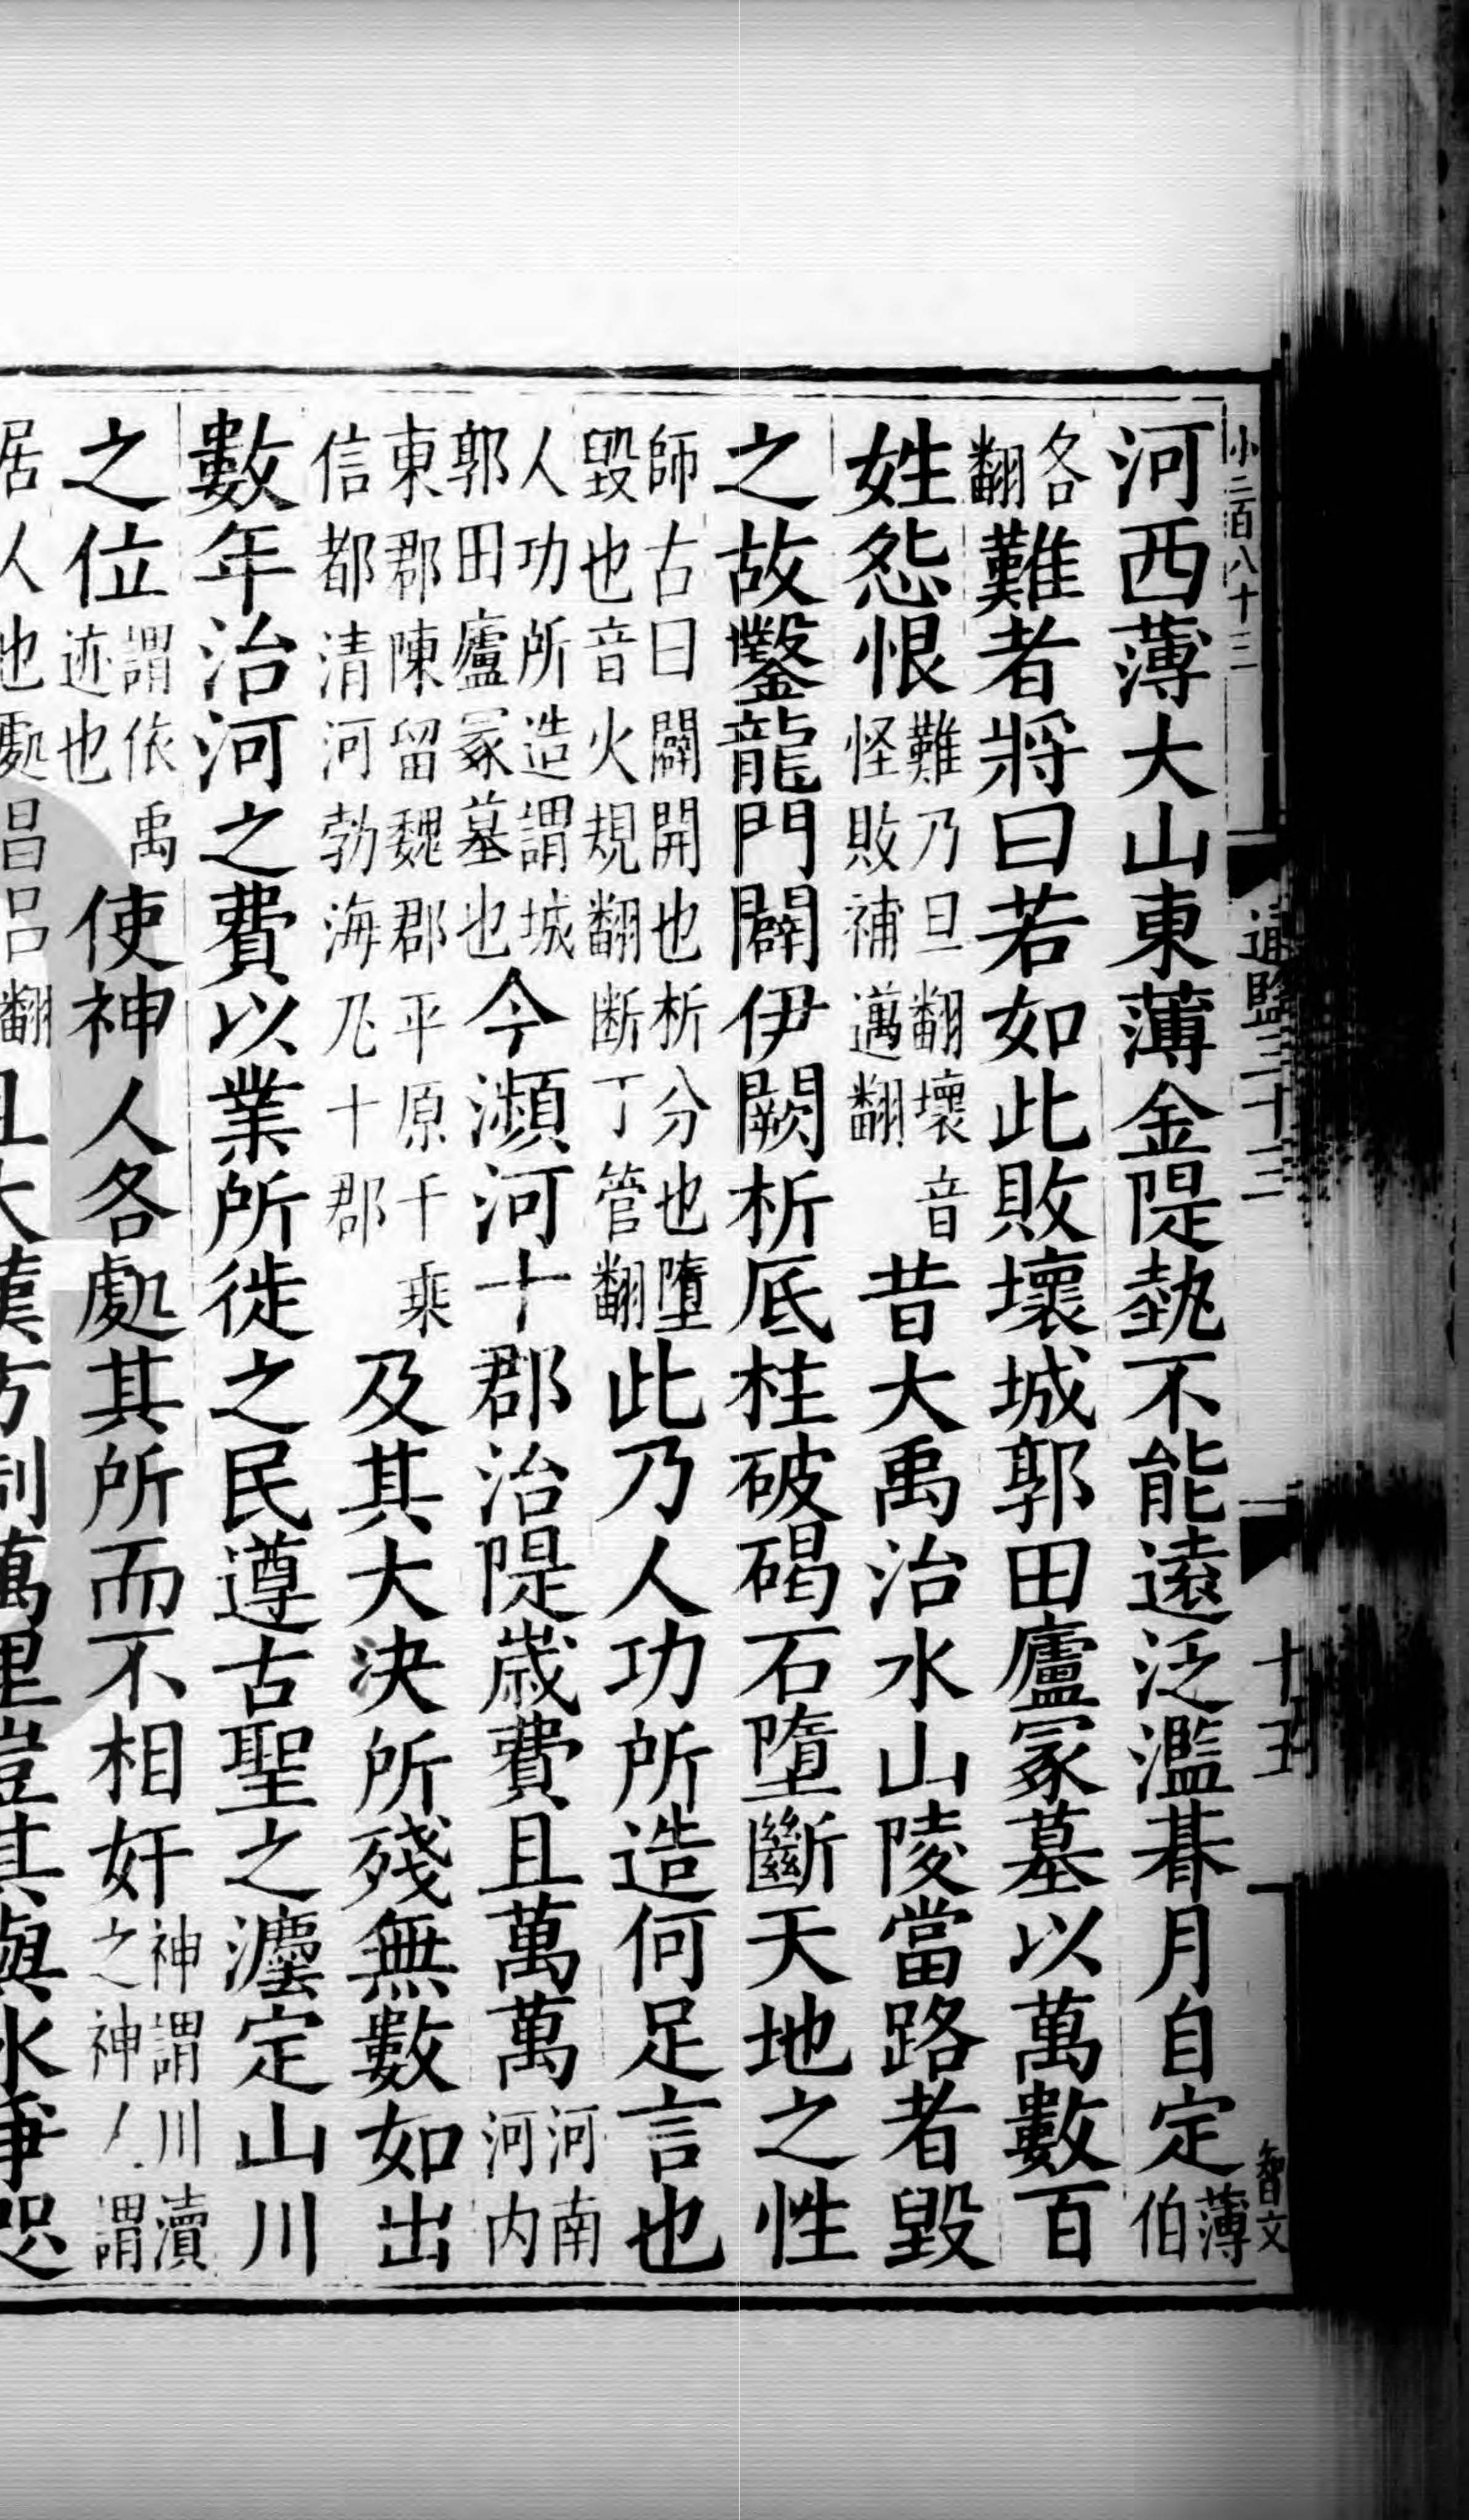 小二百八十三
通鑑三十三
十五
智文
河西薄大山東薄金隄埶不能遠泛濫朞月自定薄伯
各翻難者將曰若如此敗壞城郭田廬冢墓以萬數百
姓怨恨難乃旦翻壞音怪敗補邁翻昔大禹治水山陵當路者毀
之故鑿龍門闢伊闕析底柱破碣石墮斷天地之性
師古曰闢開也析分也墮毀也音火規翻断丁管翻此乃人功所造何足言也
人功所造謂城郭田廬冢墓也今瀕河十郡治隄歲費且萬萬河南河内
東郡陳留魏郡平原千乘信都清河勃海凡十郡及其大決所殘無數如出
數年治河之費以業所徙之民遵古聖之灋定山川
之位謂依禹迹也使神人各處其所而不相奸神謂川瀆之神人謂
居人也處昌呂翻且大漢方制萬里豈其與水爭咫